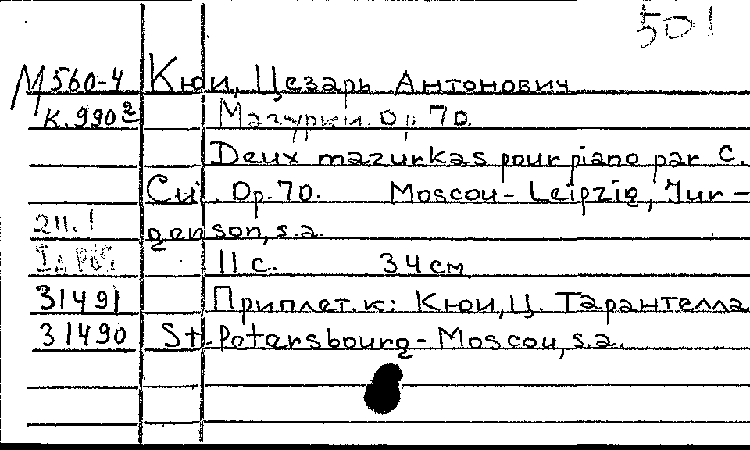 50!
М560-4 Кюи, Цезарь Антонович
К.990² Мазурки. Op. 70.
Deux mazurkas pour piano par C.
Cui. Op. 70. Moscou-Leipzig, Jur-
211.! genson, s.a.
11 с. 34 см
31491 Приплет. к: Кюи, Ц. Тарантелла
31490 St.-Petersbourg-Moscou, s.a.